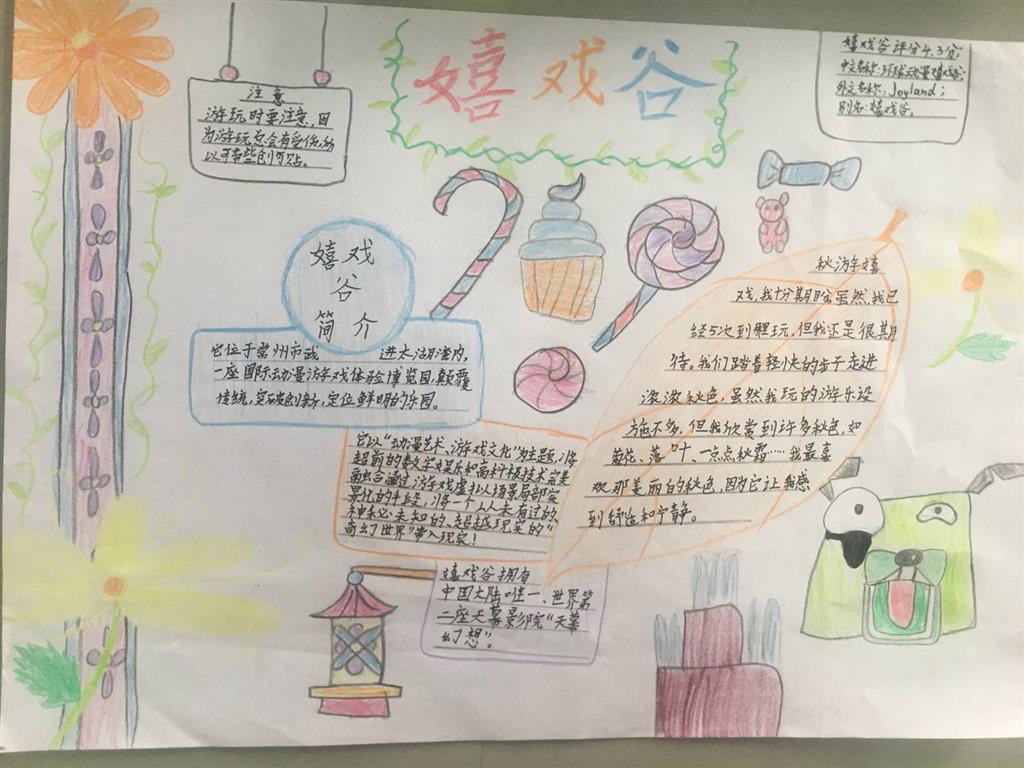 嬉戏谷
注意
游玩时要注意,因
为游玩也会有受伤,所
以可带些创可贴。
嬉戏谷评分4.3分;
中文名称:环球动漫嬉戏谷;
外文名称:Joyland;
别名:嬉戏谷。
嬉戏
谷
简介
它位于常州市武 进太湖湾内,
一座国际动漫游戏体验博览园,颠覆
传统,突破创新,定位鲜明的乐园。
它以“动漫艺术、游戏文化”为主题,将
超前的数字娱乐和高科技技术完美
融合通过游戏虚拟场景局部实
景化的手段,将一个人人未有过的
神秘未知的、超越现实的“
奇幻世界”带入现实!
嬉戏谷拥有
中国大陆唯一、世界第
二座天幕影院“天幕
幻想”。
秋游嬉
戏,我十分期盼虽然,我已
经5次到里玩,但我还是很期
待。我们踏着轻快的步子走进
浓浓秋色,虽然我玩的游乐设
施不多,但我欣赏到许多秋色,如
菊花、落叶、一点点秋霜……我最喜
欢那美丽的秋色,因为它让我感
到舒适和宁静。